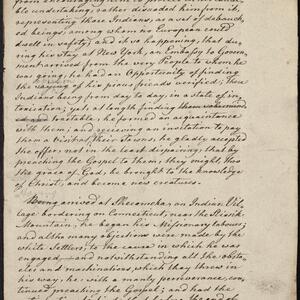 from encouraging him to
ble undertaking, rather dissuaded him from it,
representing those Indians, as a set of debauch-
ed beings, among whom no European could
dwell in safety; and it so happening, that dur-
ing his stay at New York, an Embassy to Govern-
ment arrived from the very People to whom he
was going, he had an Opportunity of finding
the of his pious friends verified; those
Indians being from day to day, in a state of in-
toxication; yet at length finding them
and tractable, he formed an acquaintance
with them; and receiving an invitation to pay
them a Visit at their Towns, he gladly accepted
the offer, not in the least despairing, that by
preaching the Gospel to them, they might, thro
the grace of God, be brought to the knowledge
of Christ, and become new creatures.
Being arrived at Shecomeko, an Indian Vil-
lage bordering on Connecticut, near the
Mountain, he began his Missionary labours;
and altho many objections were made by the
white Settlers, to the cause in which he was
engaged, and notwithstanding all the obsta-
cles and machinations which they threw in
his way; he with a manly perseverance, con-
tinued preaching the Gospel; and had the